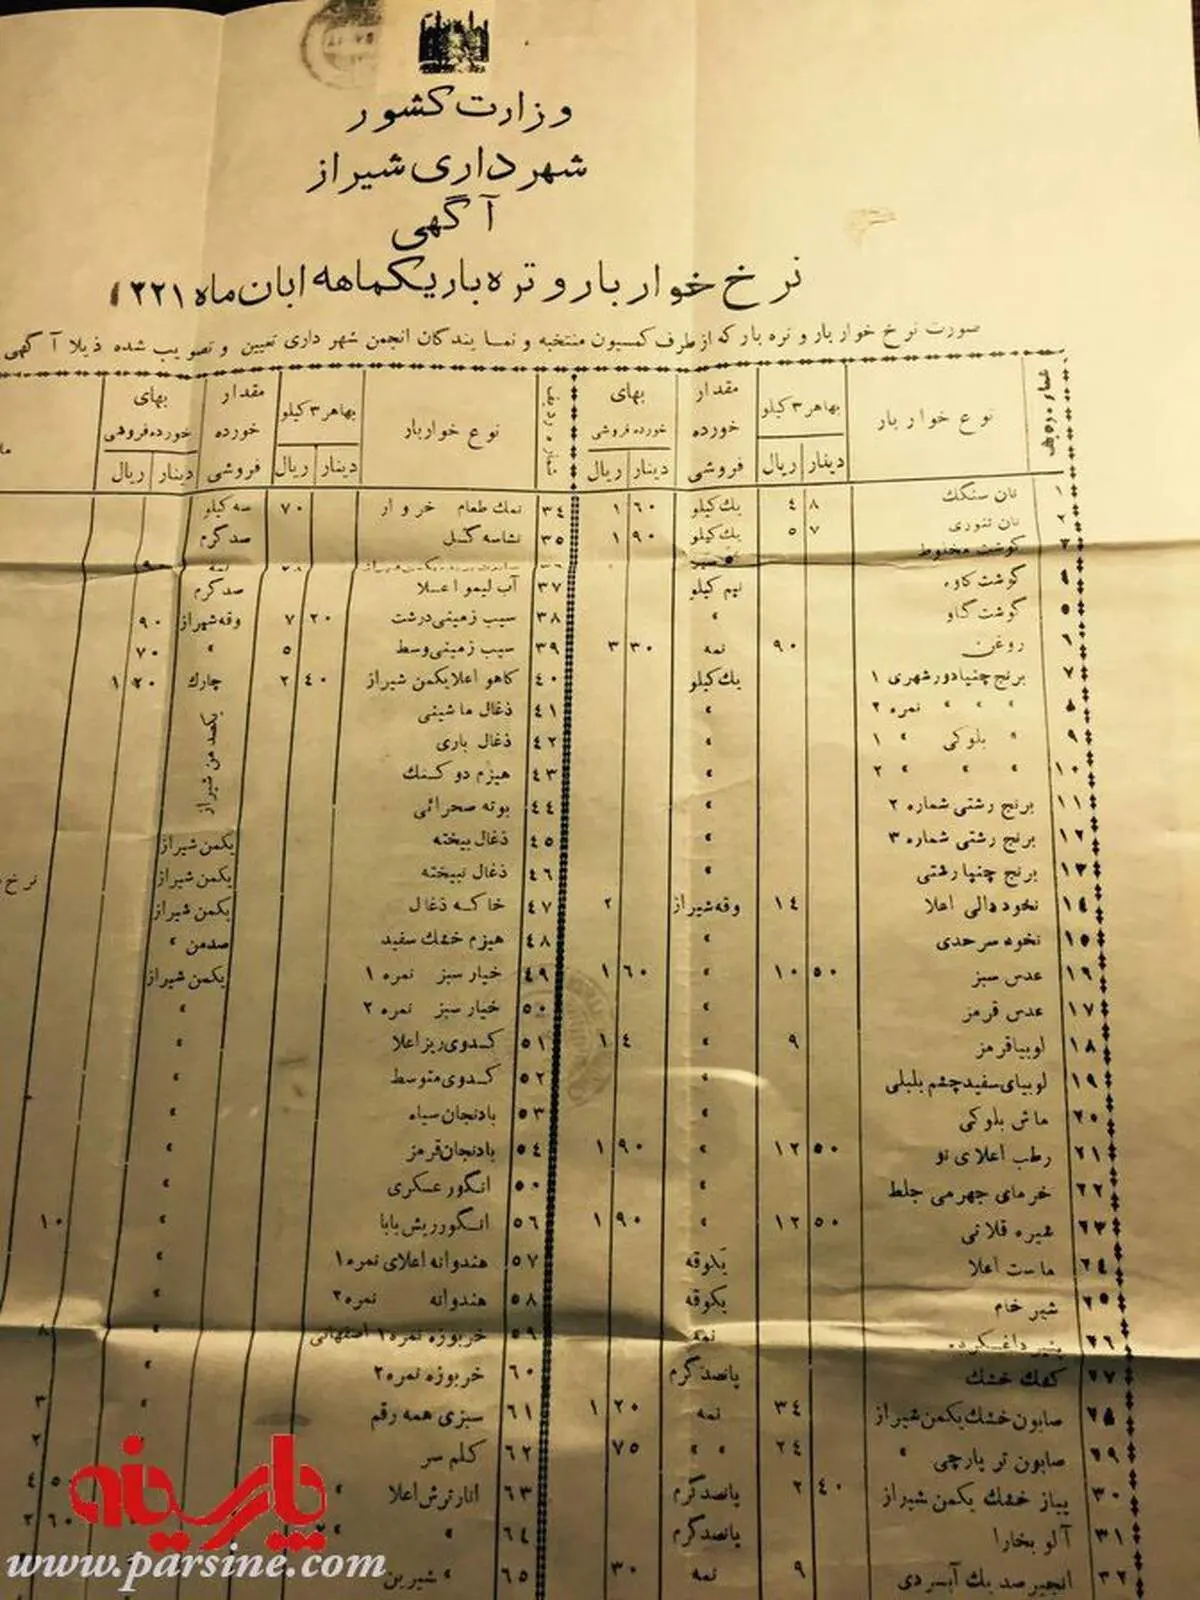 وزارت کشور
شهرداری شیراز
آگهی
نرخ خواربار و تره بار یکماهه ابان ماه ۱۳۲۱
صورت نرخ خوار بار و تره بار که از طرف کمسیون منتخبه و نمایندگان انجمن شهرداری تعیین و تصویب شده ذیلا آگهی
شماره ردیف نوع خوار بار بهاهر ۳ کیلو مقدار خورده فروشی بهای خورده فروشی
دینار ریال دینار ریال
۱ نان سنگک ۸ ۴ یك کیلو ۶۰ ۱
۲ نان تنوری ۷ ۵ یك کیلو ۹۰ ۱
۳ گوشت مخلوط
۴ گوشت کاوه نیم کیلو
۵ گوشت گاو »
۶ روغن ۹۰ نمه ۳۰ ۳
۷ برنج چنپا دور شهری ۱ یك کیلو
۸ » » » نمره ۲ »
۹ » بلوکی » ۱ »
۱۰ » » » ۲ »
۱۱ برنج رشتی شماره ۲ »
۱۲ برنج رشتی شماره ۳ »
۱۳ برنج چنپا رشتی »
۱۴ نخود دالی اعلا ۱۴ وقه شیراز ۲
۱۵ نخود سرحدی »
۱۶ عدس سبز ۵۰ ۱۰ » ۶۰ ۱
۱۷ عدس قرمز »
۱۸ لوبیا قرمز ۹ » ۴ ۱
۱۹ لوبیای سفید چشم بلبلی »
۲۰ ماش بلوکی »
۲۱ رطب اعلای نو ۵۰ ۱۲ » ۹۰ ۱
۲۲ خرمای جهرمی جلط »
۲۳ شیره قلاتی ۵۰ ۱۲ » ۹۰ ۱
۲۴ ماست اعلا یکوقه
۲۵ شیر خام یکوقه
۲۶ پنیر نمه
۲۷ کشك خشك پانصد گرم
۲۸ صابون خشك یکمن شیراز ۳۴ نمه ۲۰ ۱
۲۹ صابون تر پارچی » ۲۴ » » ۷۵
۳۰ پیاز خشك یکمن شیراز ۴۰ ۲ پانصد گرم
۳۱ آلو بخارا پانصد گرم
۳۲ انجیر صد یك آبسردی ۹ نمه ۳۰
شماره ردیف نوع خواربار بهاهر ۳ کیلو مقدار خورده فروشی بهای خورده فروشی
دینار ریال دینار ریال
۳۴ نمك طعام خروار ۷۰ سه کیلو
۳۵ نشاسه گل صد گرم
۳۷ آب لیمو اعلا صد گرم
۳۸ سیب زمینی درشت ۲۰ ۷ وقه شیراز ۹۰
۳۹ سیب زمینی وسط ۵ » ۷۰
۴۰ کاهو اعلا یکمن شیراز ۴۰ ۲ چارك ۲۰ ۱
۴۱ ذغال ماشینی
یکصد من شیراز
۴۲ ذغال باری
۴۳ هیزم دو کنك
۴۴ بوته صحرائی
۴۵ ذغال بیخته یکمن شیراز
۴۶ ذغال نبیخته یکمن شیراز
۴۷ خاکه ذغال یکمن شیراز
۴۸ هیزم خشك سفید صدمن »
۴۹ خیار سبز نمره ۱ یکمن شیراز
۵۰ خیار سبز نمره ۲ »
۵۱ کدوی ریز اعلا »
۵۲ کدوی متوسط »
۵۳ بادنجان سیاه »
۵۴ بادنجان قرمز »
۵۵ انگور عسکری »
۵۶ انگور ریش بابا » ۱۰
۵۷ هندوانه اعلای نمره ۱ »
۵۸ هندوانه نمره ۲ »
۵۹ خربوزه نمره ۱ اصفهانی » ۸
۶۰ خربوزه نمره ۲ »
۶۱ سبزی همه رقم » ۳
۶۲ کلم سر ۲
۶۳ انار ترش اعلا » ۵۰ ۴
۶۴ » » ۲ ۶۰ ۲
۶۵ » شیرین
نرخ
پارسینه
www.parsine.com